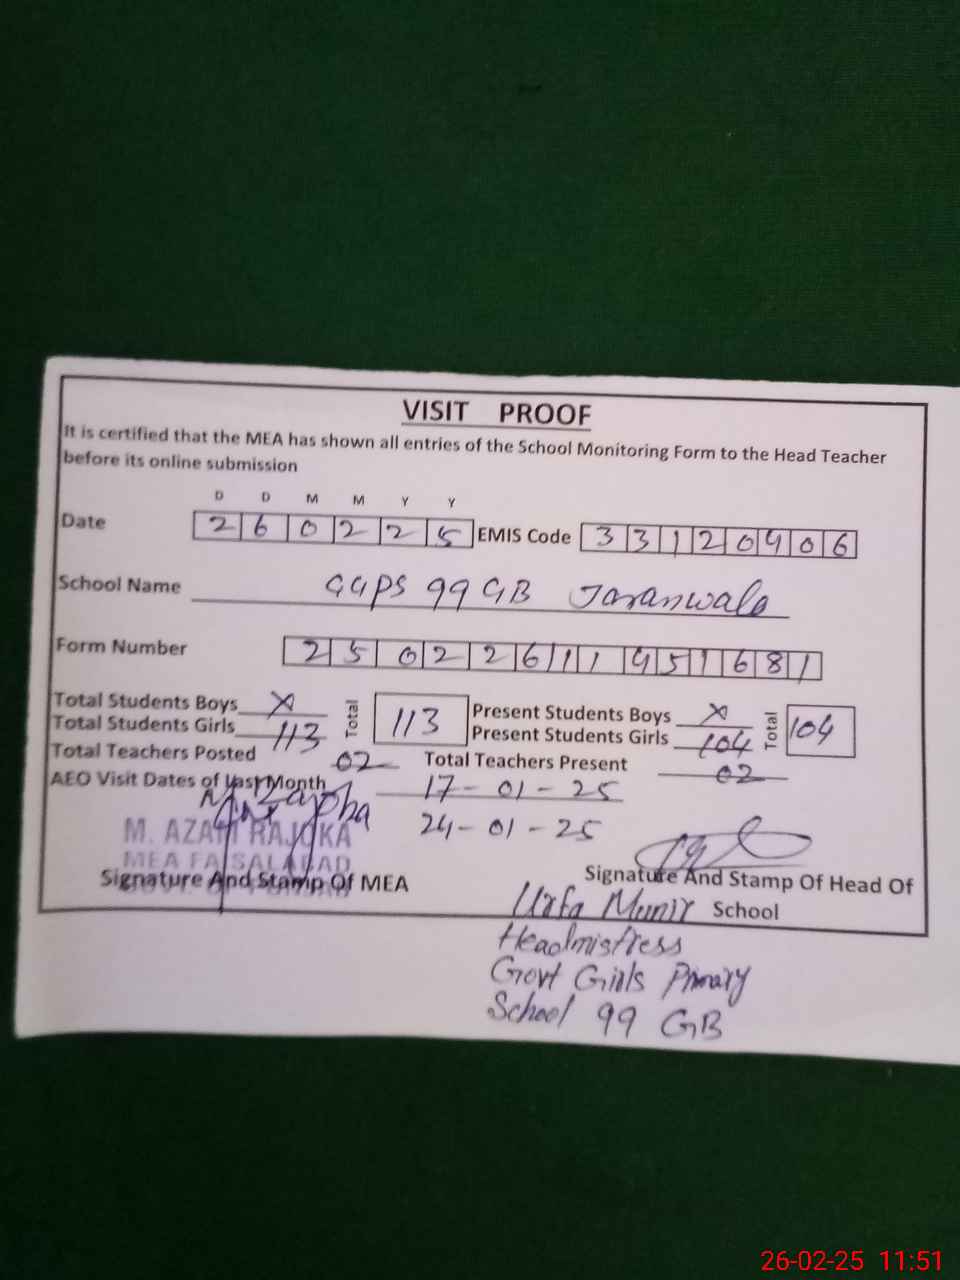 VISIT PROOF
It is certified that the MEA has shown all entries of the School Monitoring Form to the Head Teacher
before its online submission
D D M M Y Y
Date 260225 EMIS Code 33120406
School Name GGPS 99 GB Jaranwala
Form Number 25022611451681
Total Students Boys X Total 113 Present Students Boys X Total 104
Total Students Girls 113 Present Students Girls 104
Total Teachers Posted 02 Total Teachers Present 02
AEO Visit Dates of Last Month 17-01-25
24-01-25
M. AZAM RAJOKA
MEA FAISALABAD
Signature And Stamp Of MEA Signature And Stamp Of Head Of
School
Urfa Munir
Headmistress
Govt Girls Primary
School 99 GB
26-02-25 11:51